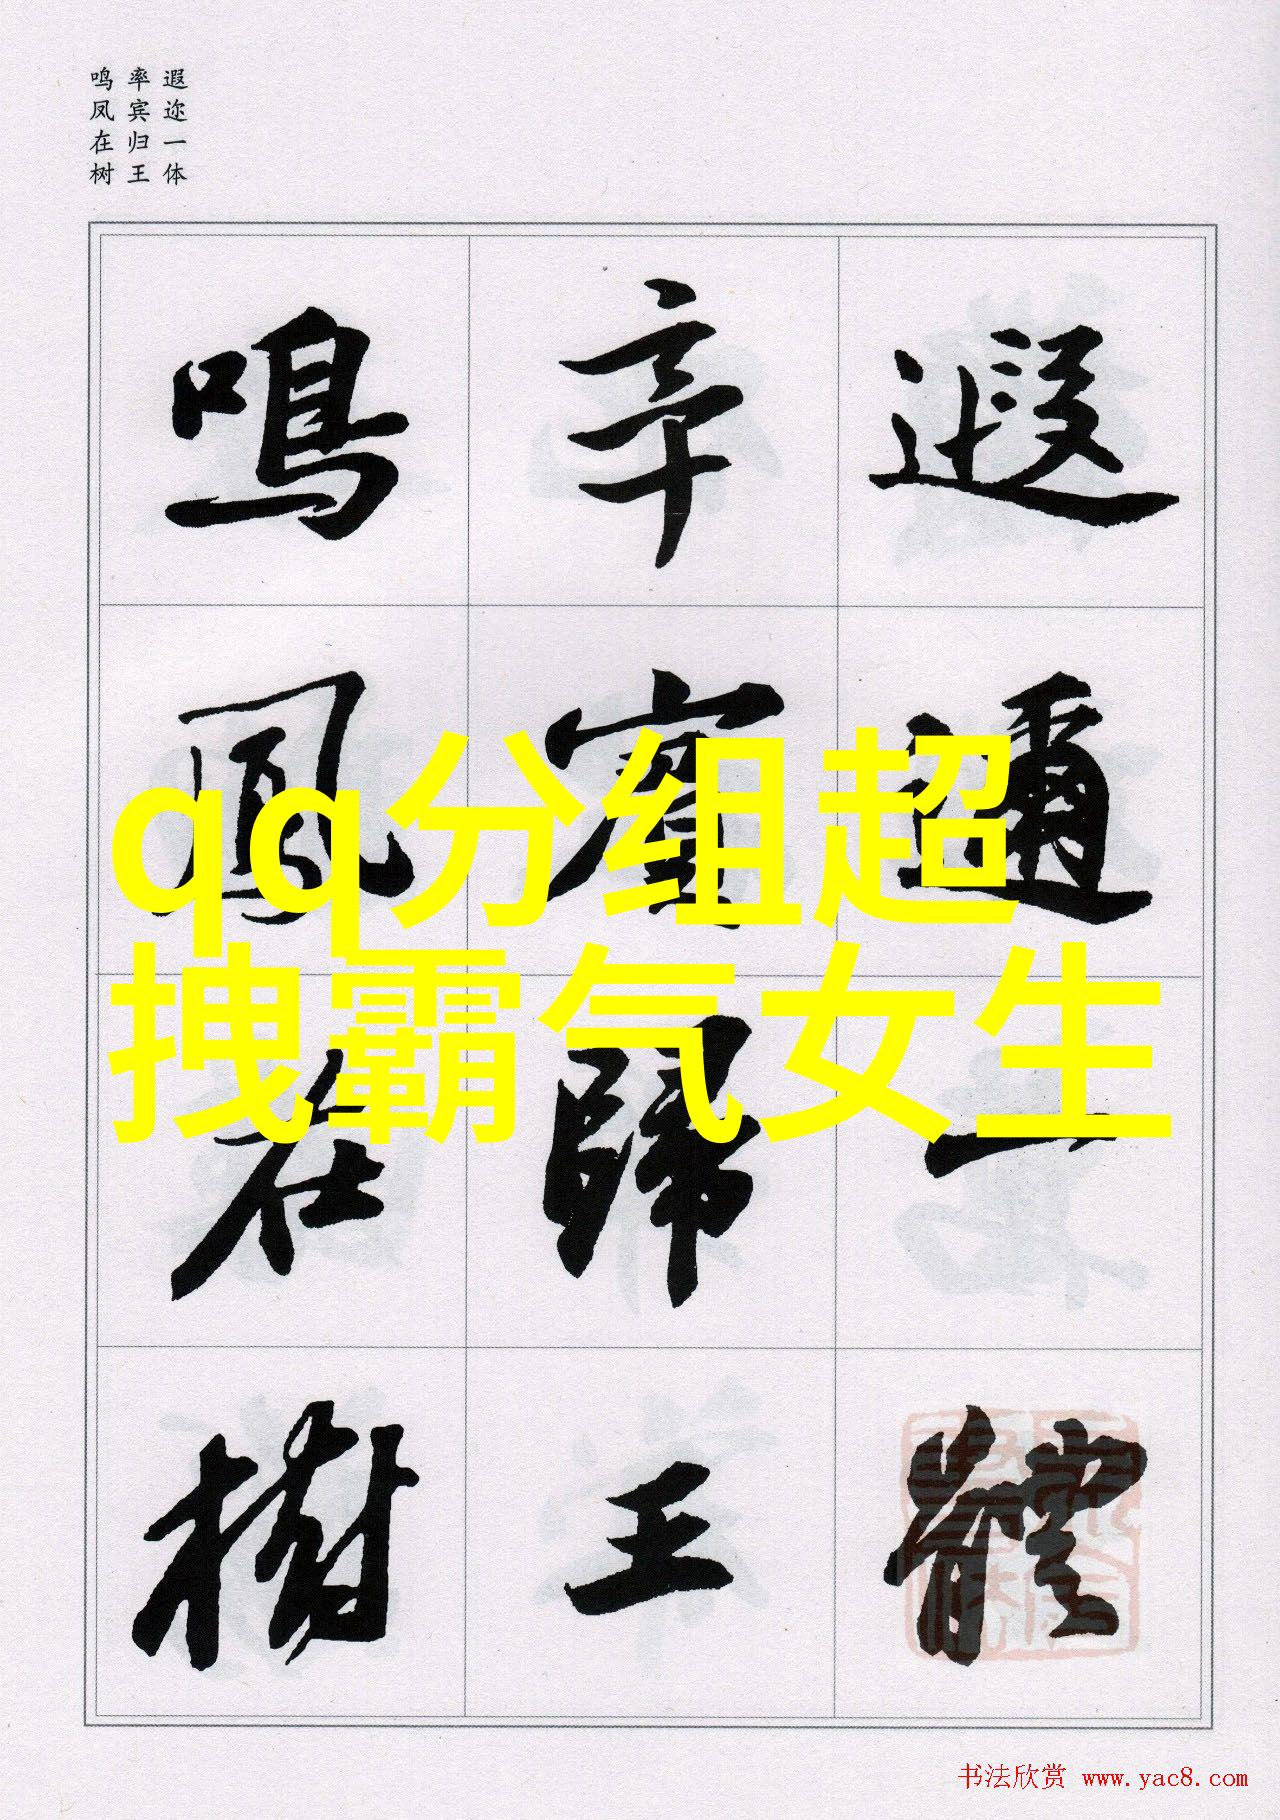 遐迩一体
率宾归王
鸣凤在树
遐邇一體
率賓歸王
鳴鳳在樹
qq分组超
拽霸气女生
书法欣赏 www.yac8.com